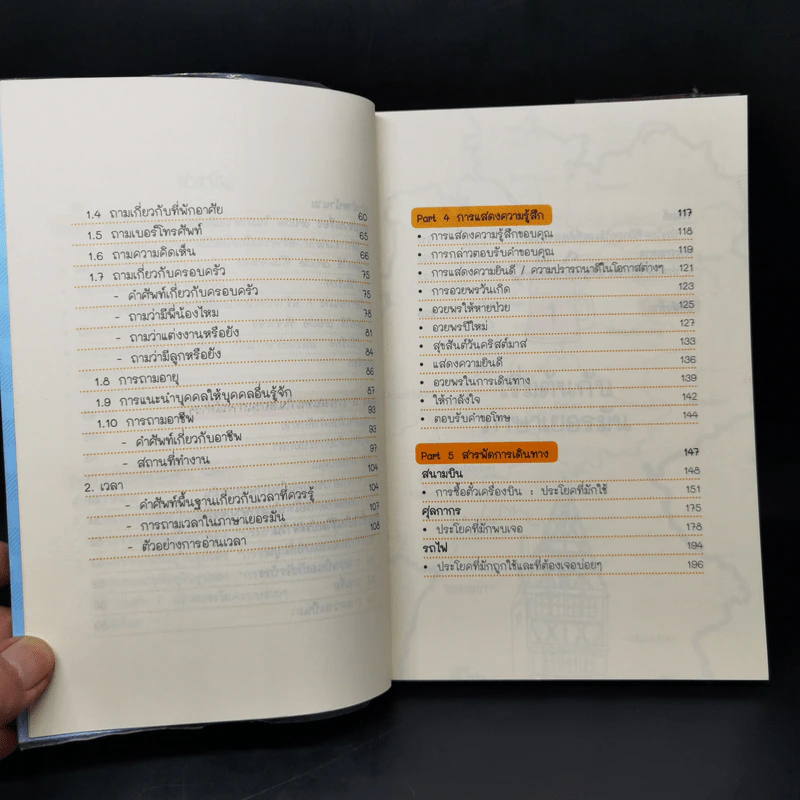 1.4 ถามเกี่ยวกับที่พักอาศัย 60
1.5 ถามเบอร์โทรศัพท์ 65
1.6 ถามความคิดเห็น 66
1.7 ถามเกี่ยวกับครอบครัว 75
- คำศัพท์เกี่ยวกับครอบครัว 75
- ถามว่ามีพี่น้องไหม 78
- ถามว่าแต่งงานหรือยัง 81
- ถามว่ามีลูกหรือยัง 84
1.8 การถามอายุ 86
1.9 การแนะนำบุคคลให้บุคคลอื่นรู้จัก 87
1.10 การถามอาชีพ 93
- คำศัพท์เกี่ยวกับอาชีพ 93
- สถานที่ทำงาน 97
2. เวลา 104
- คำศัพท์พื้นฐานเกี่ยวกับเวลาที่ควรรู้ 104
- การถามเวลาในภาษาเยอรมัน 107
- ตัวอย่างการอ่านเวลา 108
Part 4 การแสดงความรู้สึก 117
• การแสดงความรู้สึกขอบคุณ 118
• การกล่าวตอบรับคำขอบคุณ 119
• การแสดงความยินดี / ความปรารถนาดีในโอกาสต่างๆ 121
• การอวยพรวันเกิด 123
• อวยพรให้หายป่วย 125
• อวยพรปีใหม่ 127
• สุขสันต์วันคริสต์มาส 133
• แสดงความยินดี 136
• อวยพรในการเดินทาง 139
• ให้กำลังใจ 142
• ตอบรับคำขอโทษ 144
Part 5 สารพัดการเดินทาง 147
สนามบิน 148
• การซื้อตั๋วเครื่องบิน : ประโยคที่มักใช้ 151
ศุลกากร 175
• ประโยคที่มักพบเจอ 178
รถไฟ 194
• ประโยคที่มักถูกใช้และที่ต้องเจอบ่อยๆ 196